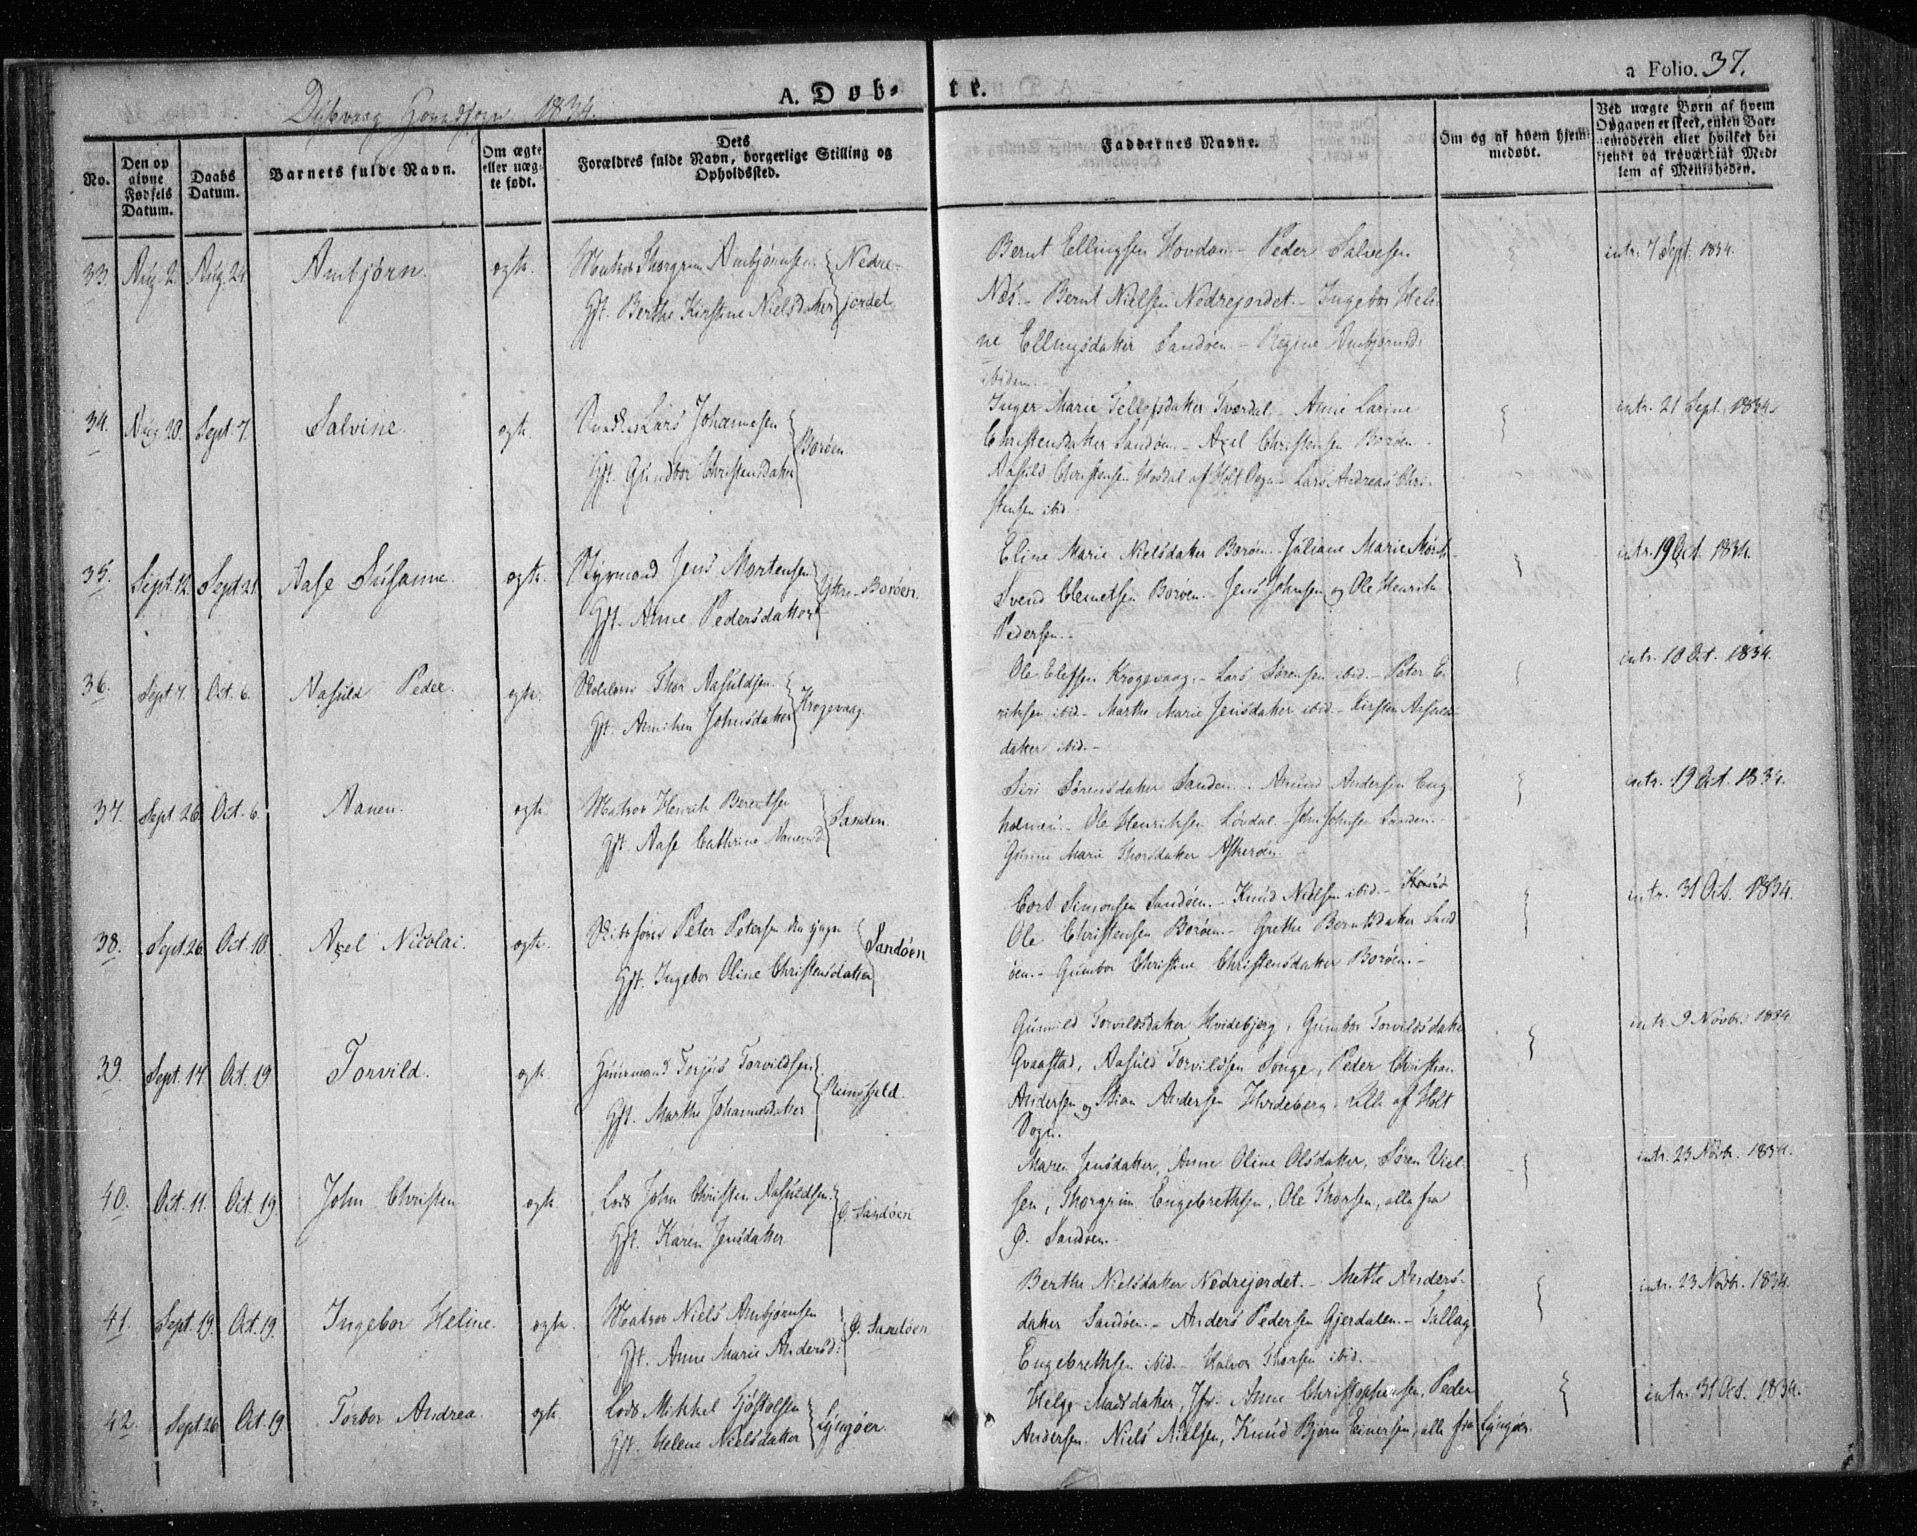 Dybvaag Hovedsogn 1834.
A. Døb-
te.
a Folio. 37.
No.
Den op
givne
Fødsels
Datum.
Daabs
Datum.
Barnets fulde Navn.
Om ægte
eller uæg-
te født.
Dets
Forældres fulde Navn, borgerlige Stilling og
Opholdssted.
Faddernes Navne.
Om og af hvem hjem-
medøbt.
Ved uægte Børn af hvem
Opgaven er skeet, enten Bar-
nemoderen eller hvilket bei
kjendt og troværdigt Med-
lem af Menigheden.
33. Aug. 2. Aug. 24. Ambjørn. ægte. Matros Thorgrim Ambjørnsen Nedre-
Gft. Berthe Kirstine Nielsdatter jordet
Bernt Ellingsen Hovdan - Peder Salvesen
Næs. - Bernt Nielsen Nedrejordet. - Ingebor Heli-
ne Ellingsdatter Sandøen - Regine Ambjørnsd:
ibidem.
intr. 7 Sept. 1834.
34. Aug. 20. Sept. 7. Salvine. ægte. Lars Johannesen
Gft. Gundbor Christensdatter Borøen
Inger Marie Tellefsdatter Tverdal - Anne Larine
Christensdatter Sandøen. - Axel Christensen Borøen -
Aasuld Christensen Hosdal af Holt Sogn - Lars Andreas Chri-
stensen ibid.
intr. 21 Sept. 1834.
35. Sept. 12. Sept. 21. Aase Susanne. ægte. Styrmand Jens Mortensen
Gft. Anne Pedersdatter Yttre-Borøen.
Eline Marie Nielsdatter Borøen. Juliane Marie
Svend Clemetsen Borøen. Jens Johnsen og Ole Henrik
Pedersen.
intr. 19 Oct. 1834.
36. Sept. 7. Oct. 6. Aasuld Peder. ægte. Thor Aasuldsen
Gft. Anniken Johnsdatter Krogevaag.
Ole Olefsen Krogevaag. - Lars Sørensen ibid. - Peter E-
riksen ibid - Marthe Marie Jensdatter ibid - Kirsten Aasulds
datter ibid. -
intr. 10 Oct. 1834.
37. Sept. 26. Oct. 6. Aanen. ægte. Matros Henrik Berentsen
Gft. Aase Cathrine Aanensd. Sanden.
Siri Sørensdatter Sanden. Amund Andersen Eng-
holmen. - Ole Henriksen Løvdal. - John Johnsen Sanden. -
Gunne Marie Thorsdatter Askerøen
intr. 19 Oct. 1834.
38. Sept. 26. Oct. 10. Axel Nicolai. ægte. Peter Petersen den yngre
Gft. Ingebor Oline Christensdatter Sandøen
Cort Simonsen Sandøen. - Knud Nielsen ibid. -
Ole Christensen Borøen. - Grethe Berntsdatter Sand
øen. - Gunbor Christine Christensdatter Borøen. -
intr. 31 Oct. 1834.
39. Sept. 14. Oct. 19. Torvild. ægte. Huusmand Terjus Torvildsen
Gft. Marthe Johannesdatter Reinsfjeld.
Gunnild Torvildsdatter Hvidebjerg, Gunbor Torvildsdatter
Qvaastad, Aasuld Torvildsen Songe, Peder Christian
Andersen og Stian Andersen Hvideberg. Alle af Holt
Sogn.
intr. 9 Novbr. 1834.
40. Oct. 11. Oct. 19 John Christen ægte. Lods John Christen Aasuldsen
Gft. Karen Jensdatter Ø. Sandøen
Maren Jensdatter, Anne Oline Olsdatter, Søren Niel
sen, Thorgrim Engebrethsen, Ole Thorsen, alle fra
Ø. Sandøen.
intr. 23 Novbr. 1834.
41. Sept. 19. Oct. 19. Ingebor Heline. ægte. Matros Niels Ambjørnsen
Gft. Anne Marie Andersd: Ø. Sandøen
Berthe Nielsdatter Nedrejordet. - Methe Anders-
datter Sandøen. - Anders Pedersen Gjerdalen. - Tallag
Engebrethsen ibid. - Halvor Thorsen ibid.
intr. 23 Novbr. 1834.
42. Sept. 26 Oct. 19. Torbor Andrea. ægte. Lods Mikkel Gjøstolsen
Gft. Helene Nielsdatter Lyngøer.
Helge Madsdatter, Jfr. Anne Christophersen, Peder
Andersen. Niels Nielsen, Knud Bjørn Einersen, alle fra Lyngøer.
intr. 31 Oct. 1834.